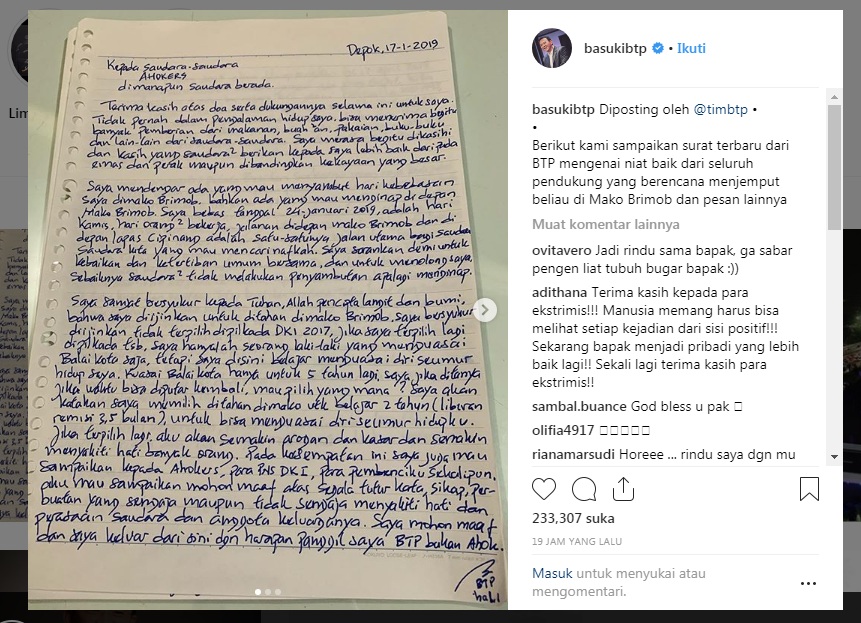 Depok, 17-1-2019
Kepada saudara-saudara
AHOKERS
dimanapun saudara berada.
Terima kasih atas doa serta dukungannya selama ini untuk saya.
Tidak pernah dalam pengalaman hidup saya, bisa menerima begitu
banyak pemberian dari makanan, buah'an, pakaian, buku-buku
dan lain-lain dari saudara-saudara. Saya merasa begitu dikasihi
dan kasih yang saudara² berikan kepada saya lebih baik daripada
emas dan perak maupun dibandingkan kekayaan yang besar.
Saya mendengar ada yang mau menyambut hari kebebasan
saya dimako Brimob. bahkan ada yang mau menginap di depan
Mako Brimob. Saya bebas tanggal 24 januari 2019, adalah hari
Kamis, hari orang² bekerja, jalanan didepan mako Brimob dan di
depan lapas Cipinang adalah satu-satunya jalan utama bagi saudara
saudara kita yang mau mencari nafkah. Saya sarankan demi untuk
kebaikan dan ketertiban umum bersama, dan untuk menolong saya,
Sebaiknya saudara² tidak melakukan penyambutan apalagi menginap.
Saya sangat bersyukur kepada Tuhan, Allah pencipta langit dan bumi,
bahwa saya diijinkan untuk ditahan dimako Brimob. Saya bersyukur
diijinkan tidak terpilih dipilkada DKI 2017, jika saya terpilih lagi
dipilkada tsb, saya hanyalah seorang laki-laki yang menguasai
Balai Kota saja, tetapi saya disini belajar menguasai diri seumur
hidup saya. Kuasai Balai kota hanya untuk 5 tahun lagi, saya jika ditanya
jika waktu bisa diputar kembali, mau pilih yang mana? saya akan
katakan saya memilih ditahan dimako utk belajar 2 tahun (liburan
remisi 3,5 bulan), untuk bisa menguasai diri seumur hidupku.
Jika terpilih lagi, aku akan semakin arogan dan kasar dan semakin
menyakiti hati banyak orang. Pada kesempatan ini saya juga mau
Sampaikan kepada Ahokers, para PNS DKI, Para pembenciku sekalipun,
aku mau sampaikan mohon maaf atas segala tutur kata, sikap, per-
buatan yang sengaja maupun tidak sengaja menyakiti hati dan
perasaan saudara dan anggota keluarganya. Saya mohon maaf
dan saya keluar dari sini dgn harapan panggil saya BTP bukan Ahok.
BTP
basukibtp • Ikuti
basukibtp Diposting oleh @timbtp •
•
Berikut kami sampaikan surat terbaru dari
BTP mengenai niat baik dari seluruh
pendukung yang berencana menjemput
beliau di Mako Brimob dan pesan lainnya
Muat komentar lainnya
ovitavero Jadi rindu sama bapak, ga sabar
pengen liat tubuh bugar bapak :))
adithana Terima kasih kepada para
ekstrimis!!! Manusia memang harus bisa
melihat setiap kejadian dari sisi positif!!!
Sekarang bapak menjadi pribadi yang lebih
baik lagi!! Sekali lagi terima kasih para
ekstrimis!!
sambal.buance God bless u pak
olifia4917
rianamarsudi Horeee ... rindu saya dgn mu
233,307 suka
19 JAM YANG LALU
Masuk untuk menyukai atau
mengomentari.
Lim